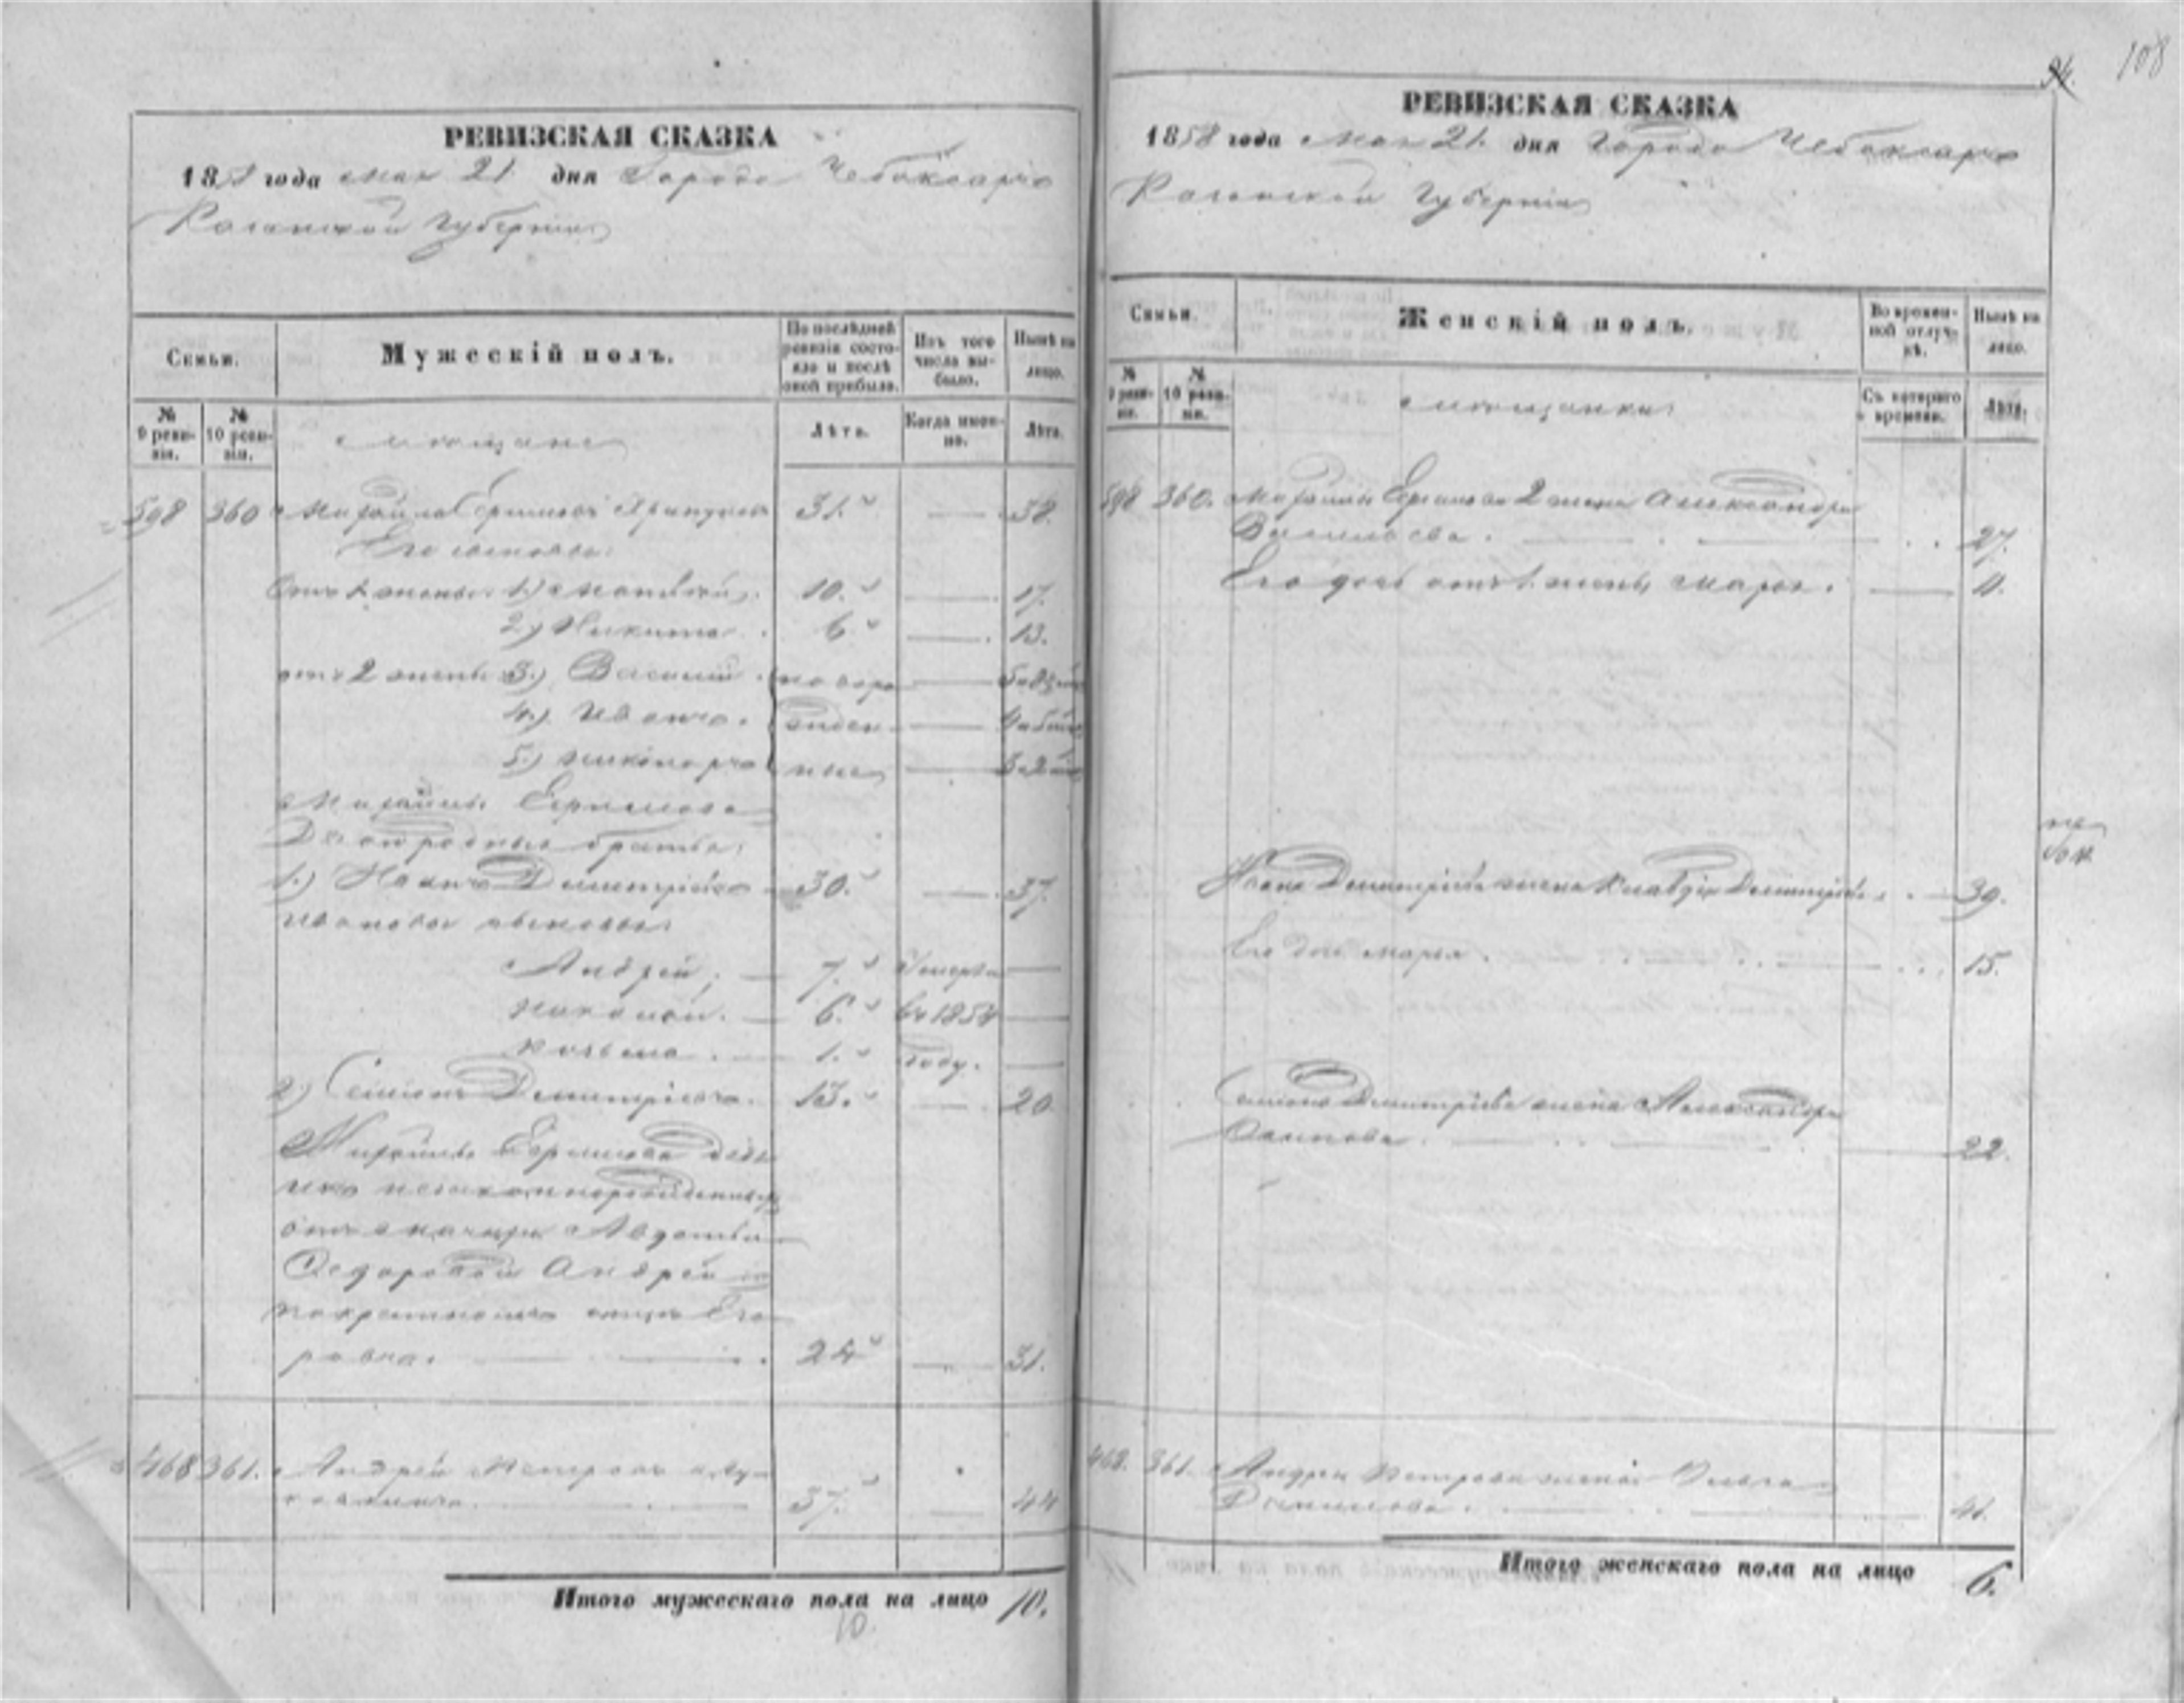 108
РЕВИЗСКАЯ СКАЗКА
185 года мая 21 дня Города Чебоксаръ
Казанской Губерніи
Семьи.
Мужескій полъ.
По послѣдней ревизіи состояло и послѣ оной прибыло.
Изъ того числа выбыло.
Нынѣ на лицо.
№ 9 ревизіи.
№ 10 ревизіи.
мѣщане
Лѣта.
Когда именно.
Лѣта.
598 360 Михайло Ермиловъ 31. — 38.
Его сыновья:
Отъ 1 жены 1.) Матвей 10. — 17.
2.) Никита 6. — 13.
отъ 2 жены 3.) Василий ново ро —
4.) Иванъ. жден —
5.) Никоноръ ные —
Михайлы Ермилова
Двоюродные братья:
1.) Иванъ Димитріевъ 30. — 37.
Ивановы сыновья:
Андрей, — 7. Умерли —
Николай. — 6. въ 1854 —
Козьма. — 1. году. —
2.) Семіонъ Димитріевъ. 13. — 20
Михайлы Ермилова
незаконнорожденный
отъ Авдотьи
Федоровой Андрей
по крестному отцу Его
ровъ. — 24 — 31.
468 361. Андрей Петровъ
37. — 44
Итого мужескаго пола на лицо 10.
10.
РЕВИЗСКАЯ СКАЗКА
1858 года мая 21. дня Города Чебоксаръ
Казанской Губерніи
Семьи.
Женскій полъ.
Во временной отлучкѣ.
Нынѣ на лицо.
№ 9 ревизіи.
№ 10 ревизіи.
мѣщанки
Съ котораго времени.
Лѣта.
598 360. Михайлы Ермилова 2 жена Александра
Васильева. — 27.
Его дочь отъ 1. жены Марья. — 11.
Ивана Димитріева жена Клавдія Димитріева — 39.
Его дочь Марья. — 15.
Семіона Димитріева жена Александра
Осипова. — 22.
468. 361. Андрея Петрова жена Ольга
Данилова. — 41.
Итого женскаго пола на лицо 6.